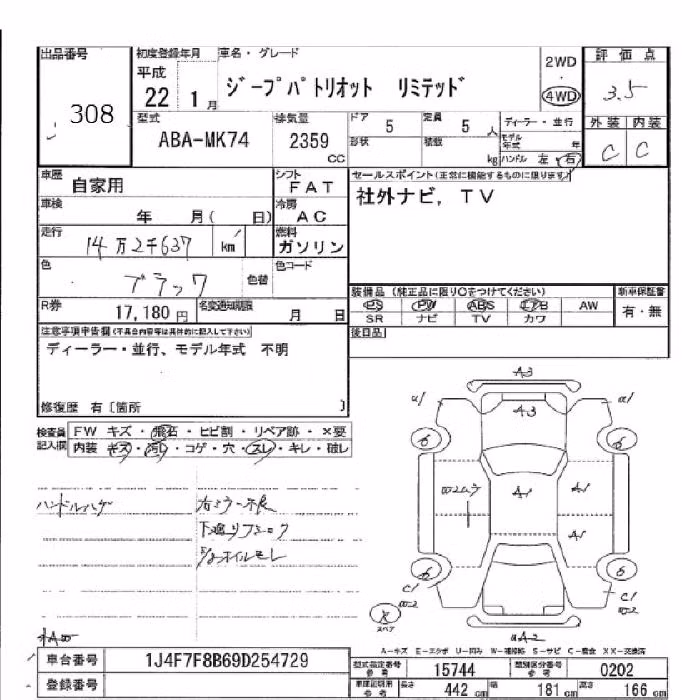 出品番号
308
初度登録年月
平成
22 1月
車名・グレード
ジープパトリオット リミテッド
2WD
・
4WD
評価点
3.5
外装 内装
C C
型式
ABA-MK74
排気量
2359
CC
ドア 5
形状
定員 5 人
積数 kg
ディーラー・並行
モデル年式 年
ハンドル 左・右
車歴
自家用
シフト
FAT
車検 年 月( 日)
冷房
AC
走行
14万2千637 km
燃料
ガソリン
色
ブラック
色替
色コード
R券
17,180円
名変通知期限
月 日
セールスポイント(正常に機能するものに限ります)
社外ナビ, TV
装備品 (純正品に限り○をつけてください)
PS PW ABS エアB AW
SR ナビ TV カワ
新車保証書
有・無
後日品
注意事項申告欄(不具合内容等は具体的に記入して下さい)
ディーラー・並行、モデル年式 不明
修復歴 有〔箇所 〕
検査員記入欄
FW キズ・飛石・ヒビ割・リペア跡・×要
内装 キズ・汚レ・コゲ・穴・スレ・キレ・破レ
ハンドルハゲ
右ミラー不良
下廻りフミック
オイルモレ
A3
A3
U1
U1
6
6
W2ムラ
A1
A1
A1
6
6
C1
W2
C1
W2
スペア
A2
A-キズ E-エクボ U-凹み W-補修跡 S-サビ C-腐食 XX-交換済
車台番号
1J4F7F8B69D254729
登録番号
型式指定番号 参考
15744
類別区分番号 参考
0202
車庫証明用 参考
長さ 442 cm
幅 181 cm
高さ 166 cm